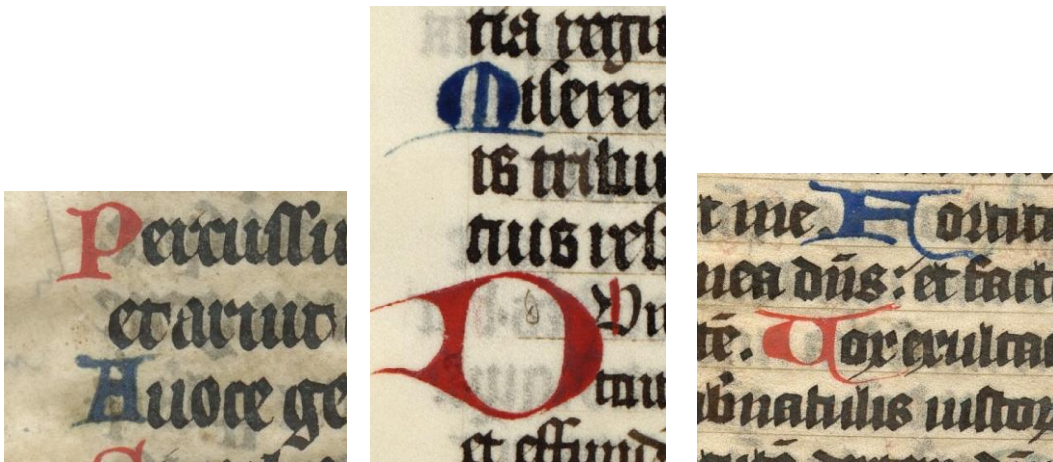 Percussu
et aruit
A uoce ge
tia regu
Miserer
is tribu
et effund
t me. Fortitu
mea dn̄s: et fact
tē. Vox exultac
b̄naculis iustor